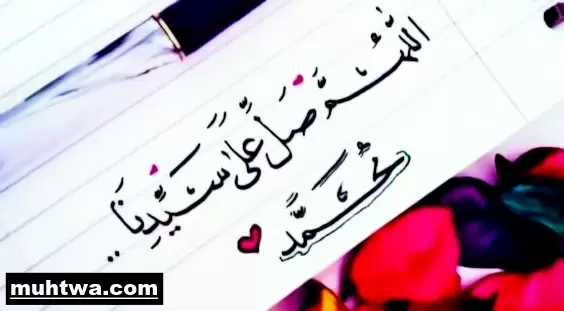 اللَّهُمَّ صَلِّ عَلَى سَيِّدِنَا ..
مُحَمَّد
muhtwa.com